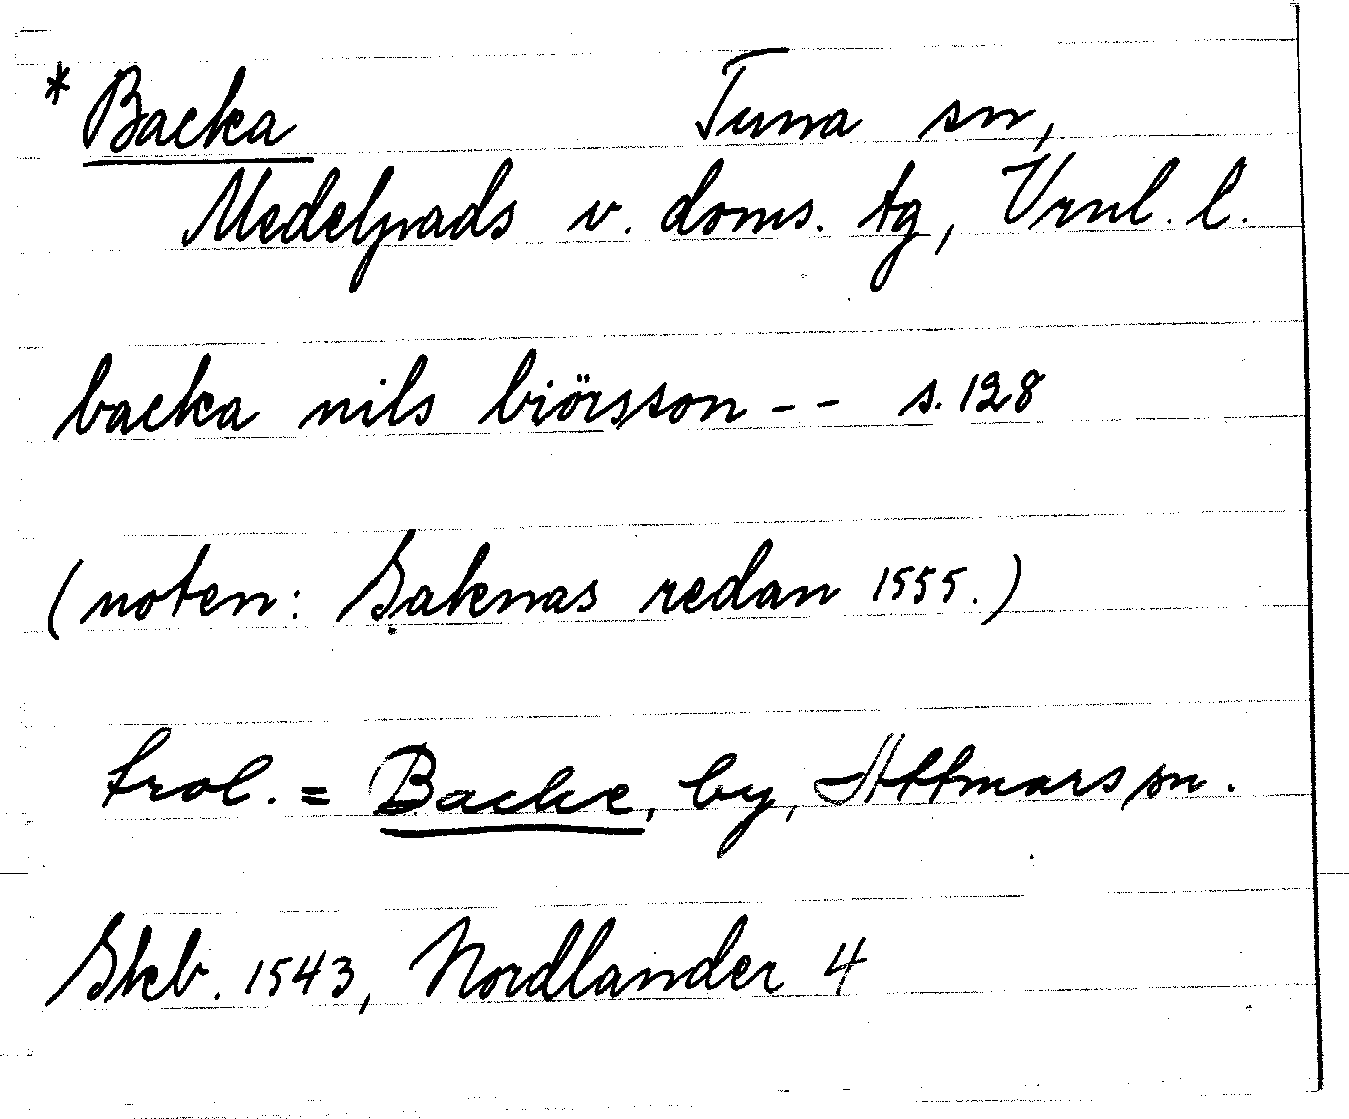 * Backa Tuna sn,
Medelpads v. doms. tg, Vrnl. l.
backa nils biörsson -- s. 128
(noten: Saknas redan 1555.)
trol. = Backe, by, Attmars sn.
Skb. 1543, Nordlander 4